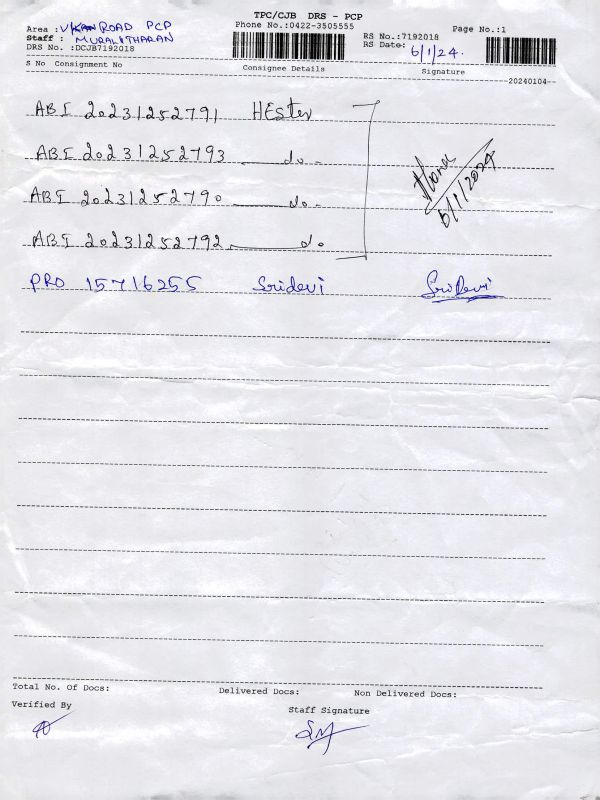 TPC/CJB DRS - PCP
Phone No.:0422-3505555
Area : VKAN ROAD PCP
Staff : MURALITHARAN
DRS No. :DCJB7192018
RS No.:7192018
RS Date: 6/1/24.
Page No.:1
S No Consignment No Consignee Details Signature
20240104
ABI 20231252791 HESter
ABI 20231252793 — do -
ABI 20231252790 — do -
ABI 20231252792 — do
6/1/2024
PRO 15716255 Sridevi SriDevi
Total No. Of Docs: Delivered Docs: Non Delivered Docs:
Verified By Staff Signature